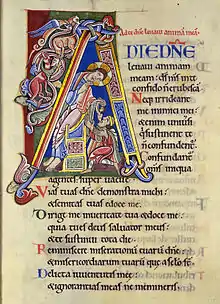 Ad te dñe leuaui animā meā
D TE DN̄E
leuaui animam
meam: ds̄ ms̄ in te
confido ñ erubescā
Neq; irrideant
me inimici mei:
etenim uniuſi
q̇ ſuſtinent te
ñ confundent̄
Confundant̄
om̄ſ iniqua
agenteſ ſuper uacue
Viaſ tuaſ dn̄e demonſtra michi:
& ſemitaſ tuaſ edoce me.
Dirige me in ueritate tua & doce me:
quia tu eſ deuſ ſaluator meuſ
& te ſuſtinui tota die.
Reminiſcere miſerationū tuarū dn̄e:
& miſericordiarum tuarū que a ſc̄lo ſt̄.
Delicta iuuentutiſ mee:
& ignorantiaſ meaſ ne memineriſ